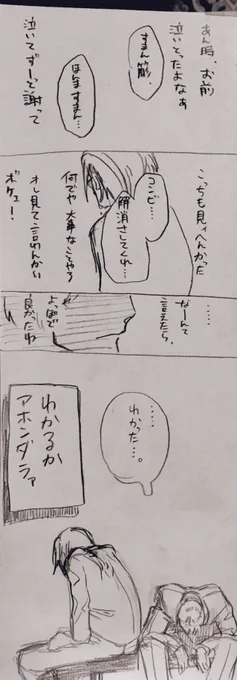 あん時、お前
泣いとったよなぁ
すまん簓、
ほんますまん…
泣いてずーっと謝って
こっちも見ィへんかった
コンビ…
解消させてくれ…
何でや 大事なことやろ
オレ見て言わんかい
ボケェー!
……
なーんて
言えたら、
よっぽど
良かったわ
……
わかった…。
わかるか
アホンダラァ